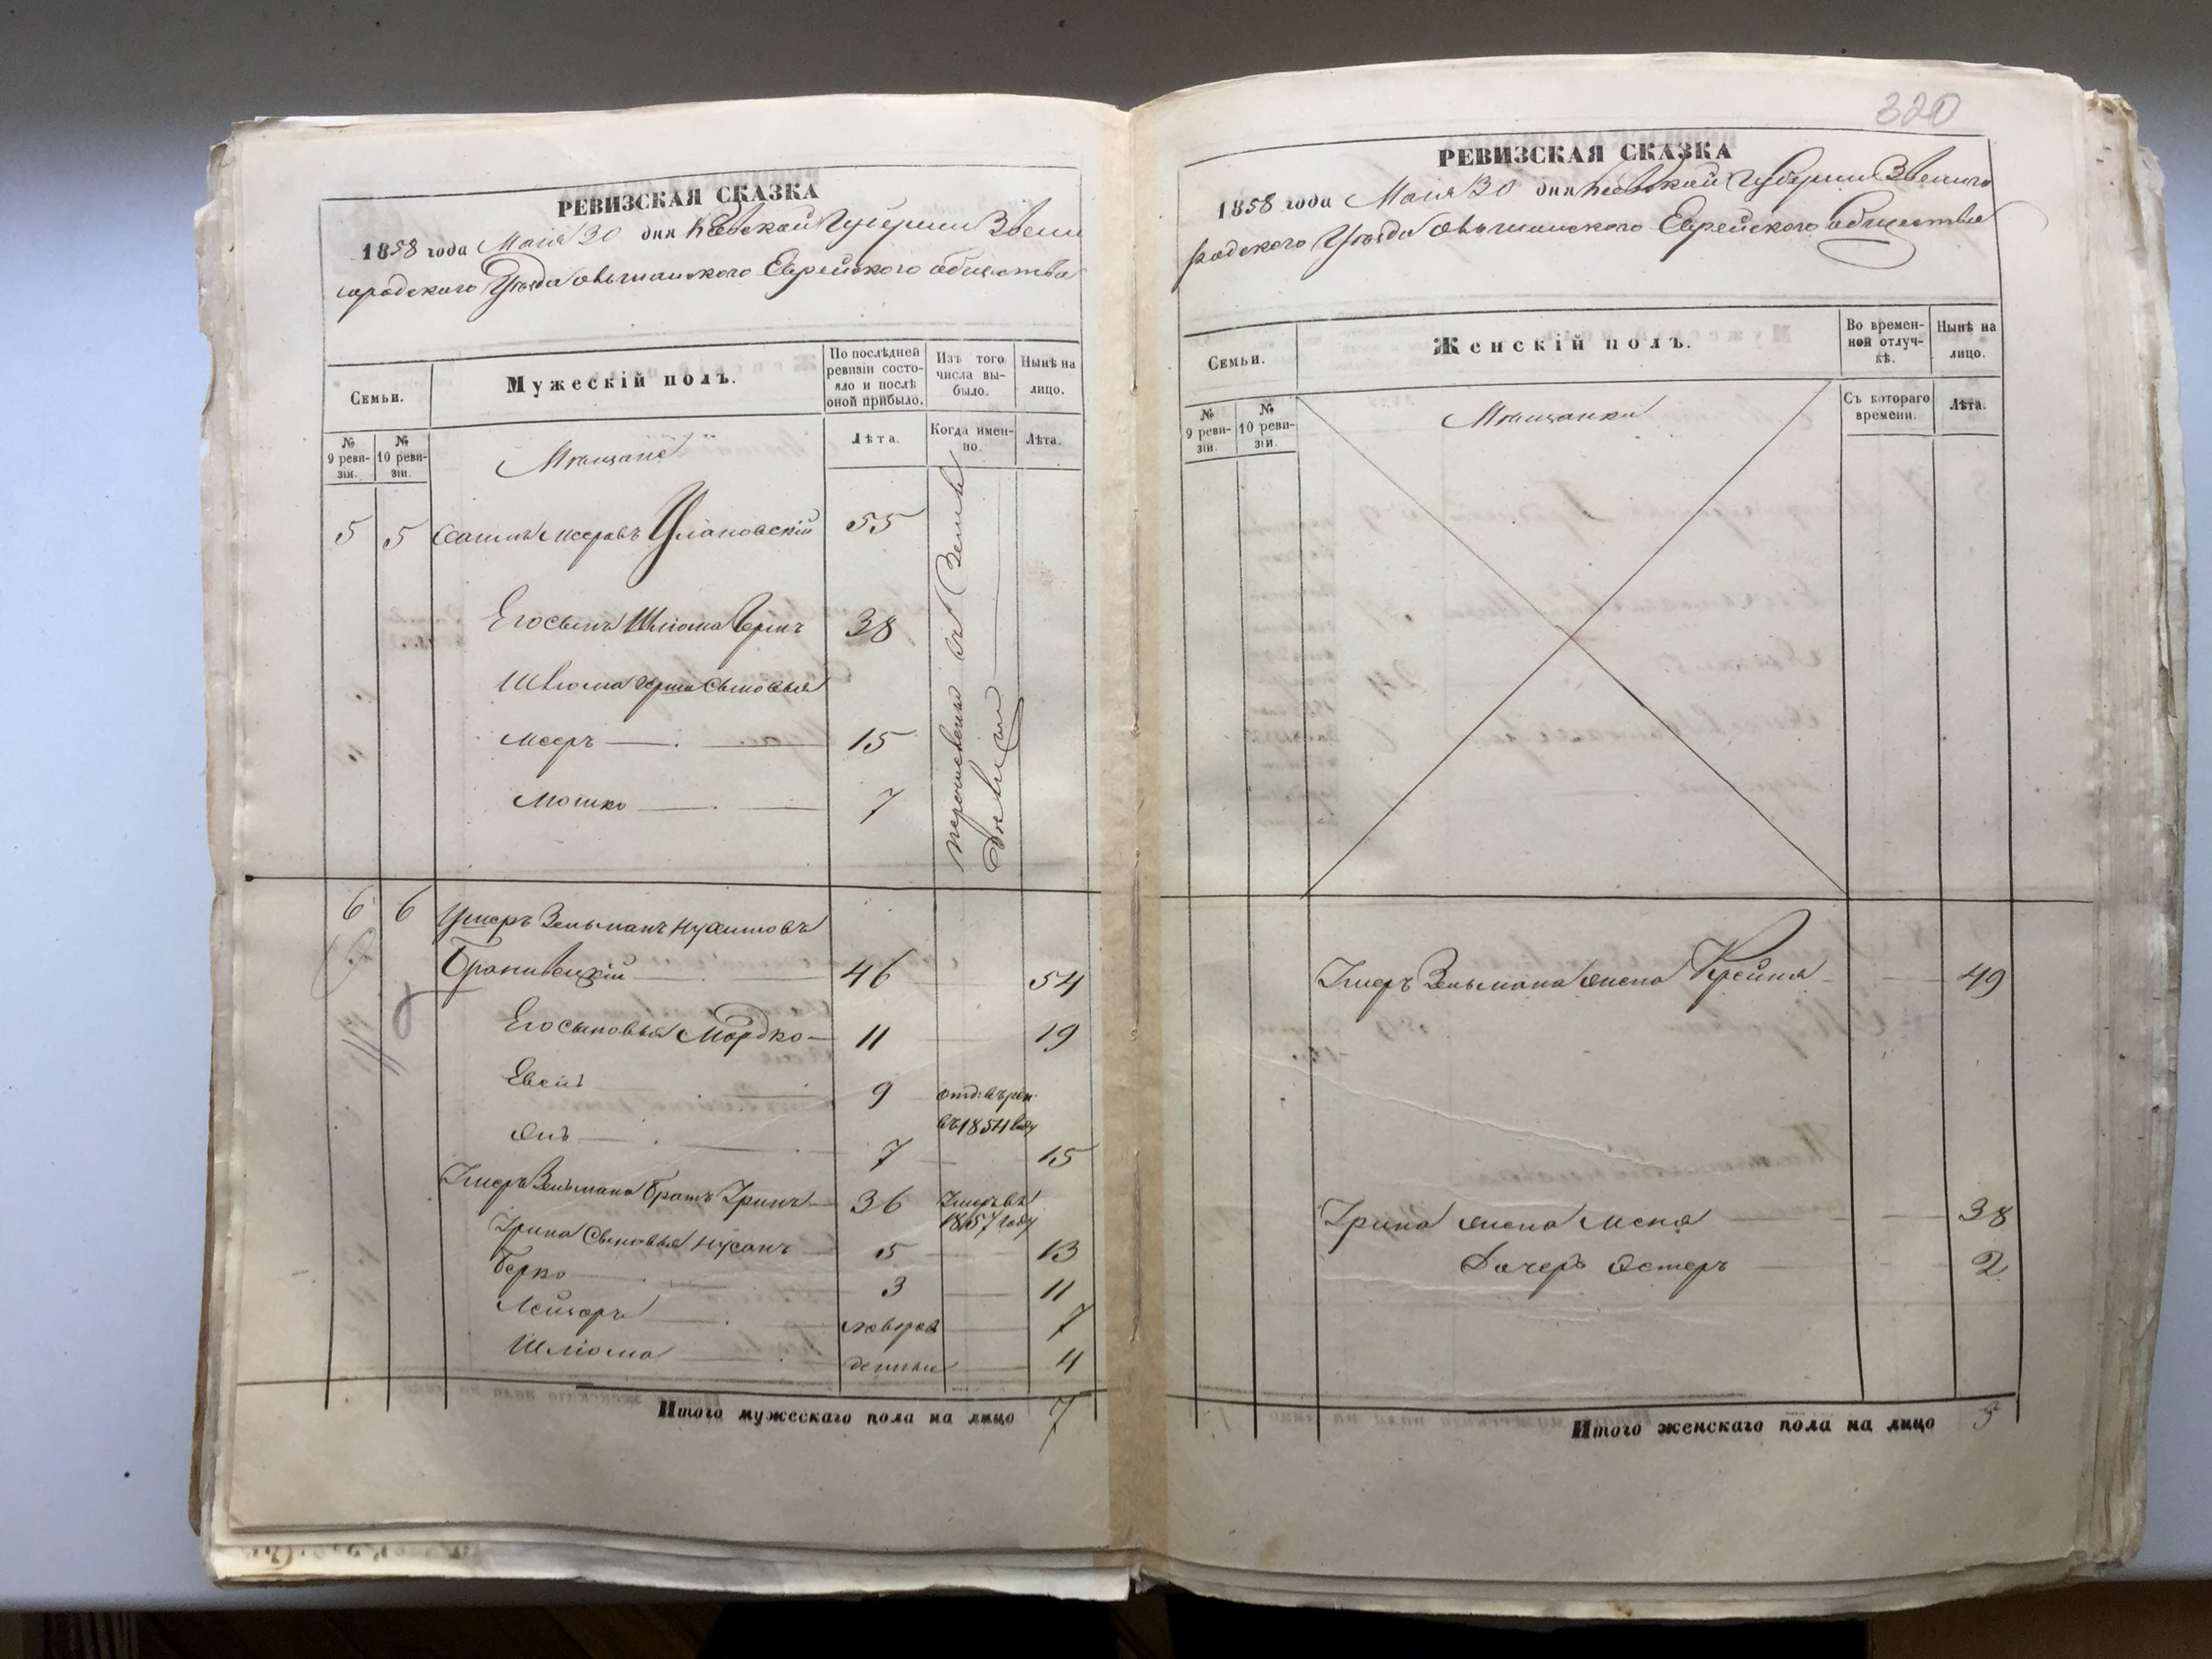 РЕВИЗСКАЯ СКАЗКА
1858 года Маія 30 дня Кіевской Губерніи Звени
городского Уѣзда Ольшанского Еврейского общества
Семьи.
Мужескій полъ.
По послѣдней ревизіи состояло и послѣ оной прибыло.
Изъ того числа выбыло.
Нынѣ на лицо.
№ 9 ревизіи.
№ 10 ревизіи.
Мѣщане
Лѣта.
Когда именно.
Лѣта.
5 5 Мееровъ Улановскій 55
перечисленъ въ
Его сынъ Шліома 38
Шліома Герша сыновья
Мееръ 15
Мошко 7
6 6 Умеръ Зельманъ Нухимовъ
46 54
Его сыновья Мордко 11 19
Евсей 9 отд: въ рек. въ 1854 году
7 15
Зельмана братъ 36 Умеръ въ 1857 году
сыновья Нухимъ 5 13
Берко 3 11
Лейзоръ новорож 7
Шліома денныи 4
Итого мужескаго пола на лицо 7
320
РЕВИЗСКАЯ СКАЗКА
1858 года Маія 30 дня Кіевской Губерніи Звениго
родского Уѣзда Ольшанского Еврейского общества
Семьи.
Женскій полъ.
Во временной отлучкѣ.
Нынѣ на лицо.
№ 9 ревизіи.
№ 10 ревизіи.
Мѣщанки
Съ котораго времени.
Лѣта.
Зельмана жена Крейна 49
жена 38
Дочерь Эстеръ 2
Итого женскаго пола на лицо 3